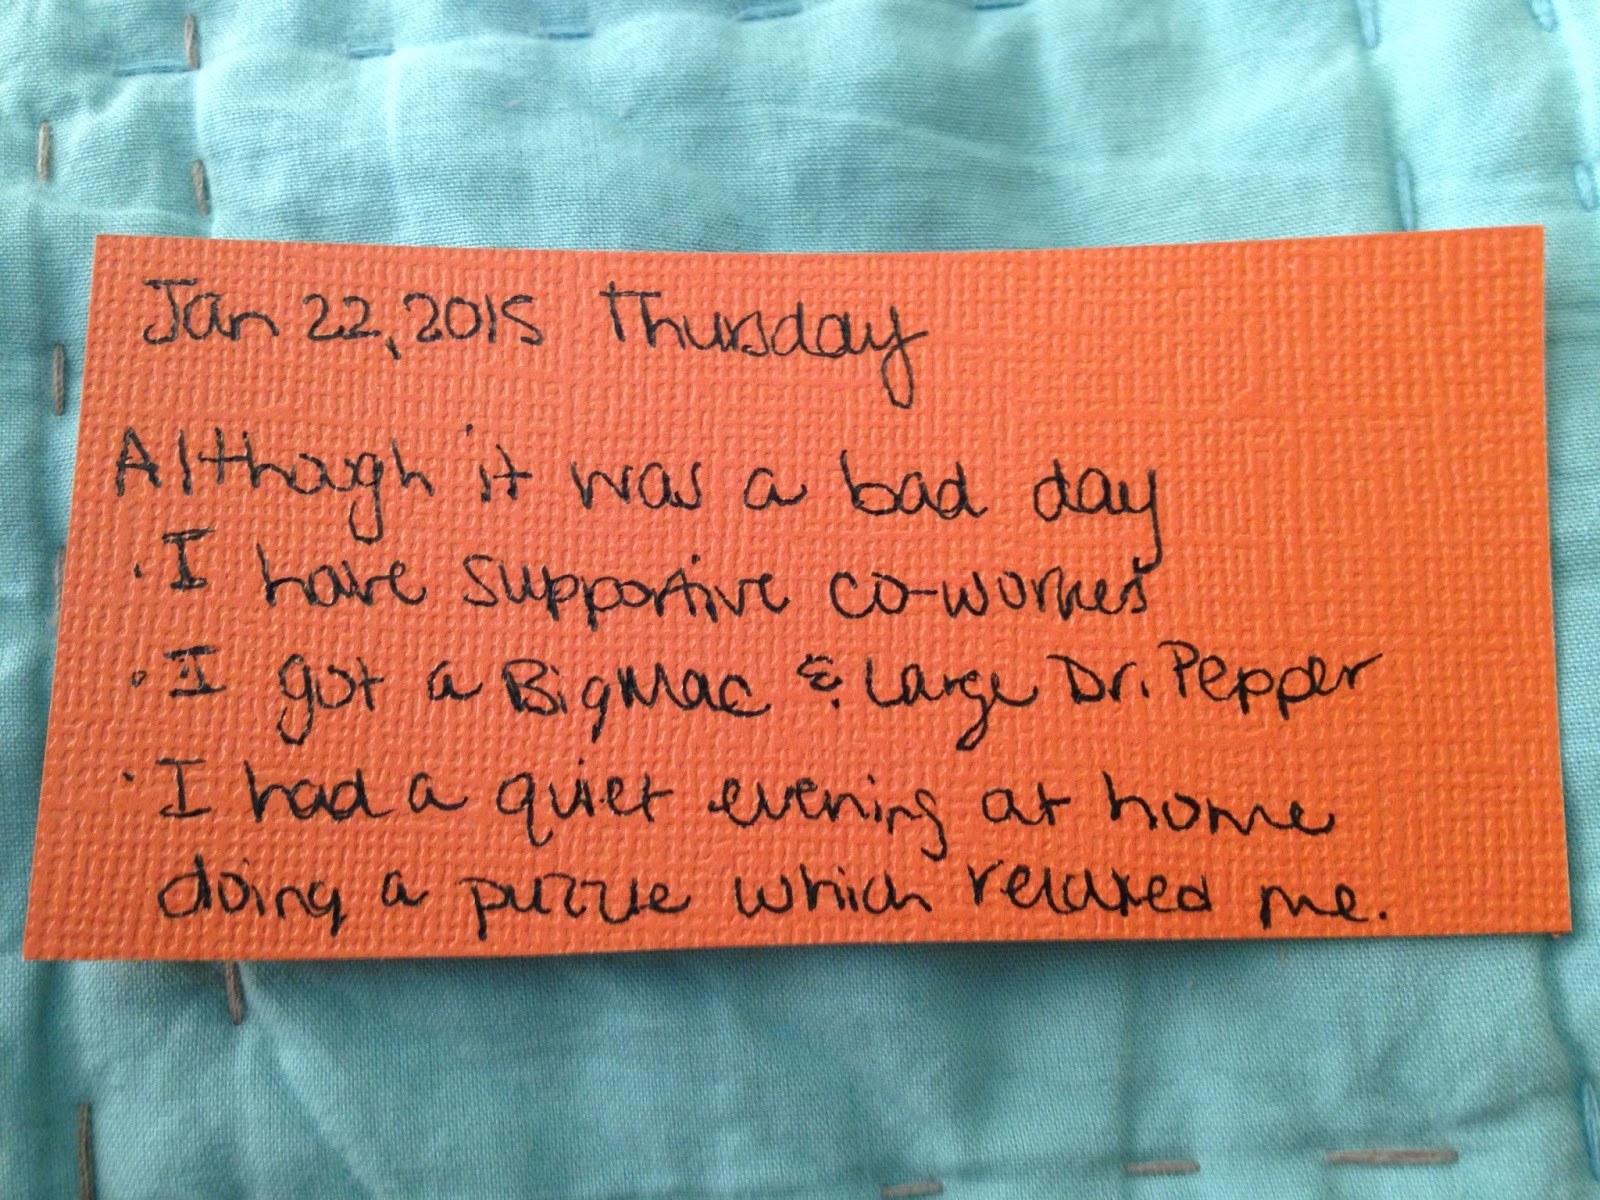 Jan 22, 2015 Thursday
Although it was a bad day
· I have supportive co-workers
· I got a BigMac & Large Dr. Pepper
· I had a quiet evening at home
doing a puzzle which relaxed me.